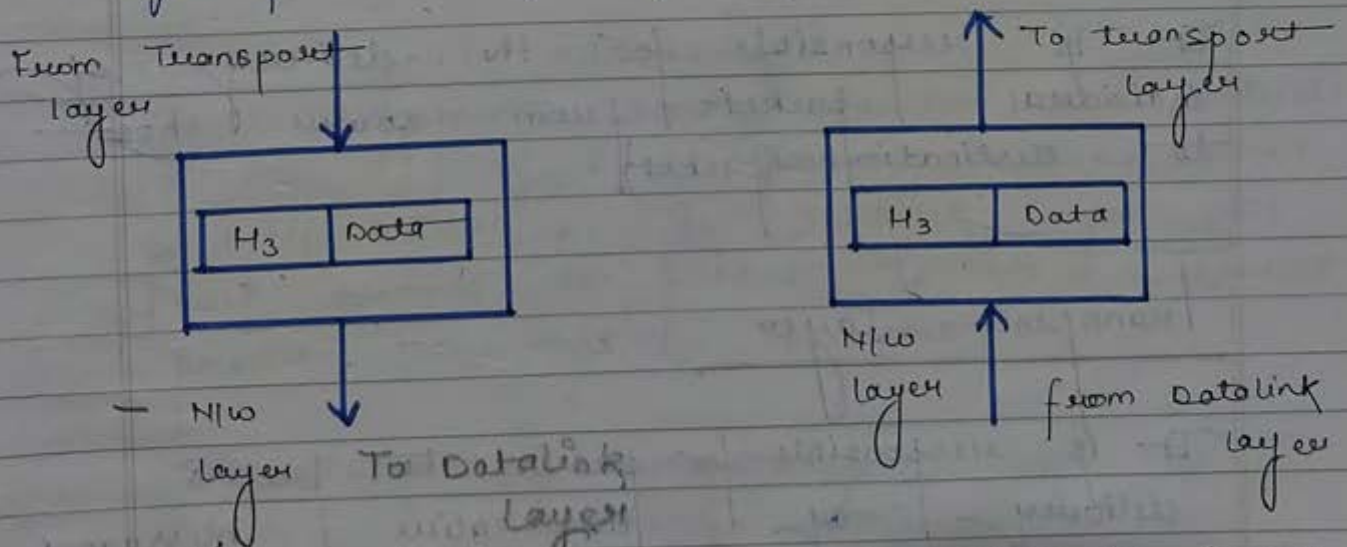 From Transport
layer
H3 Data
N/w
layer To Datalink
Layer
To transport
layer
H3 Data
N/w
layer
from Datalink
layer